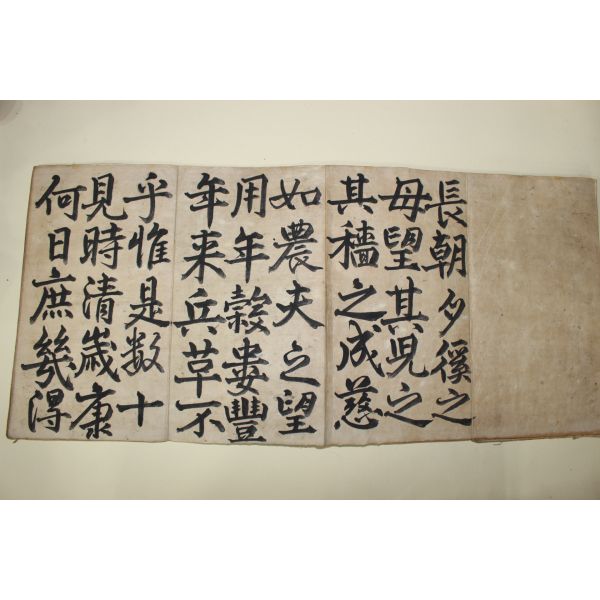 何日庶幾得
見時清歳康
乎惟是数十
年来兵草不
用年穀婁豐
如農夫之望
其穡之成慈
母望其児之
長朝夕徯之